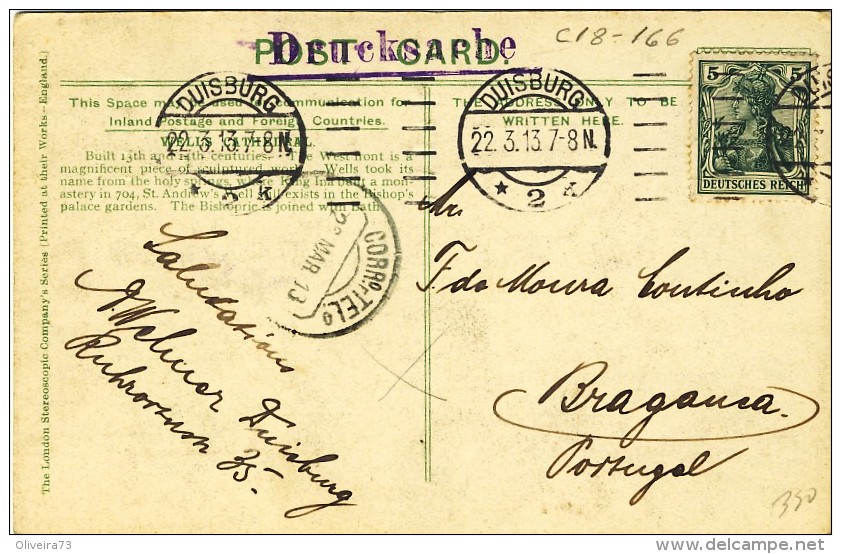 POST CARD.
Drucksache
C18-166
This Space may be used for Communication for
Inland Postage and Foreign Countries.
WELLS CATHEDRAL
Built 13th and 14th centuries. The West front is a
magnificent piece of sculptured work. Wells took its
name from the holy springs, where King Ina built a mon-
astery in 704, St. Andrew's Well still exists in the Bishop's
palace gardens. The Bishopric is joined with Bath.
THE ADDRESS ONLY TO BE
WRITTEN HERE.
DUISBURG
22.3.13.7-8N.
DUISBURG
22.3.13.7-8N.
* 2 k
5 5
DEUTSCHES REICH
MAR 13
CORRO.TELO
Saludations
A Welmer Duisburg
35.
F da Moura Coutinho
Braganca.
Portugal
350
The London Stereoscopic Company's Series (Printed at their Works—England.)
Oliveira73
delcampe.net